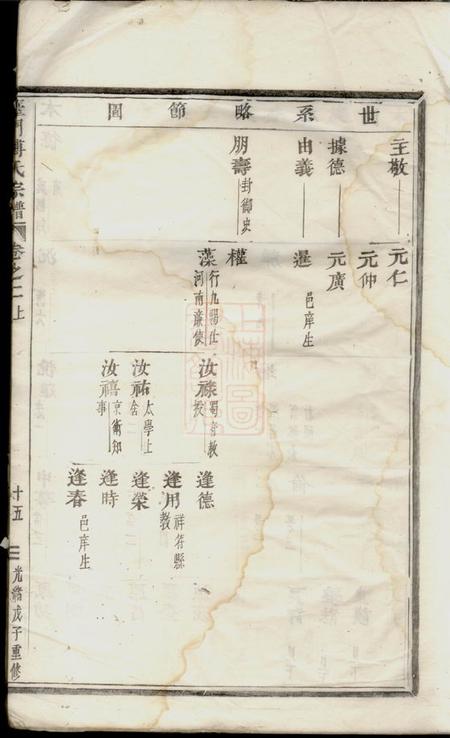 世系略節圖
主敬
據德
由義
朋壽 封御史
元仁
元仲
元廣
暹 邑庠生
權
藻 行九賜仕河南廉使
汝祿 蜀府教授
汝祐 太學上舍
汝禧 京衛知事
逢德
逢用 祥符縣教
逢榮
逢時
逢春 邑庠生
傅氏宗譜
卷之一上
十五
光緒戊子重修